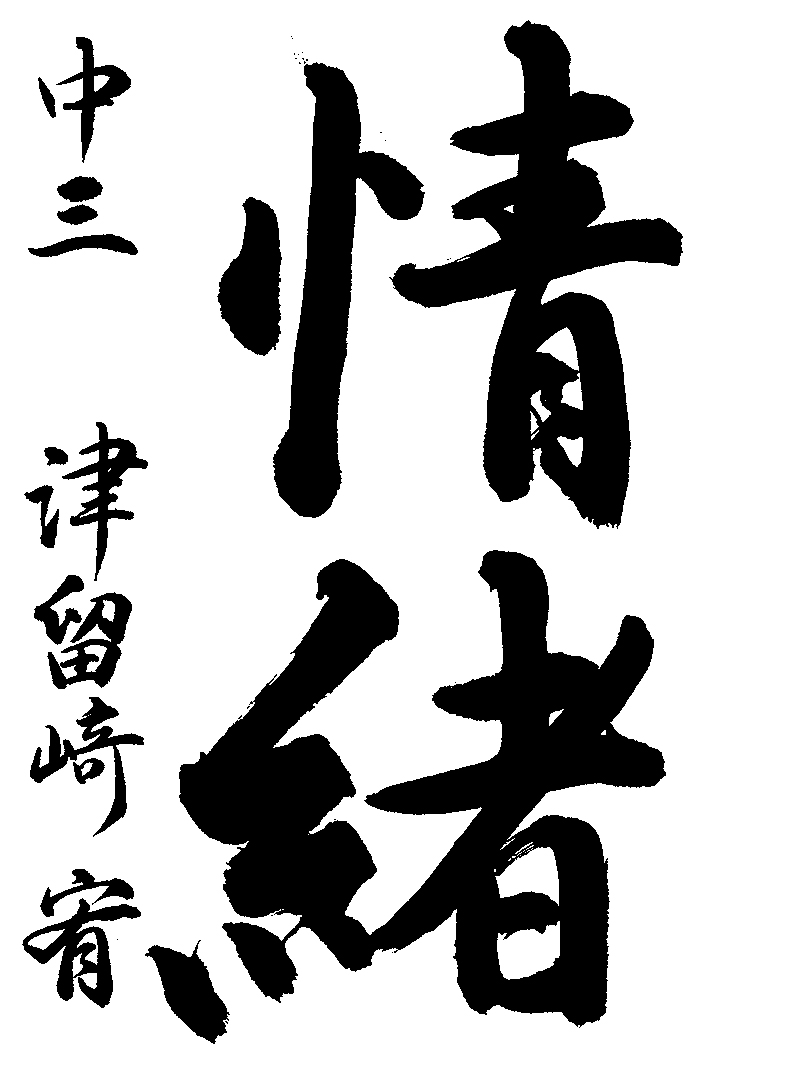 情緒
中三 津留崎宥